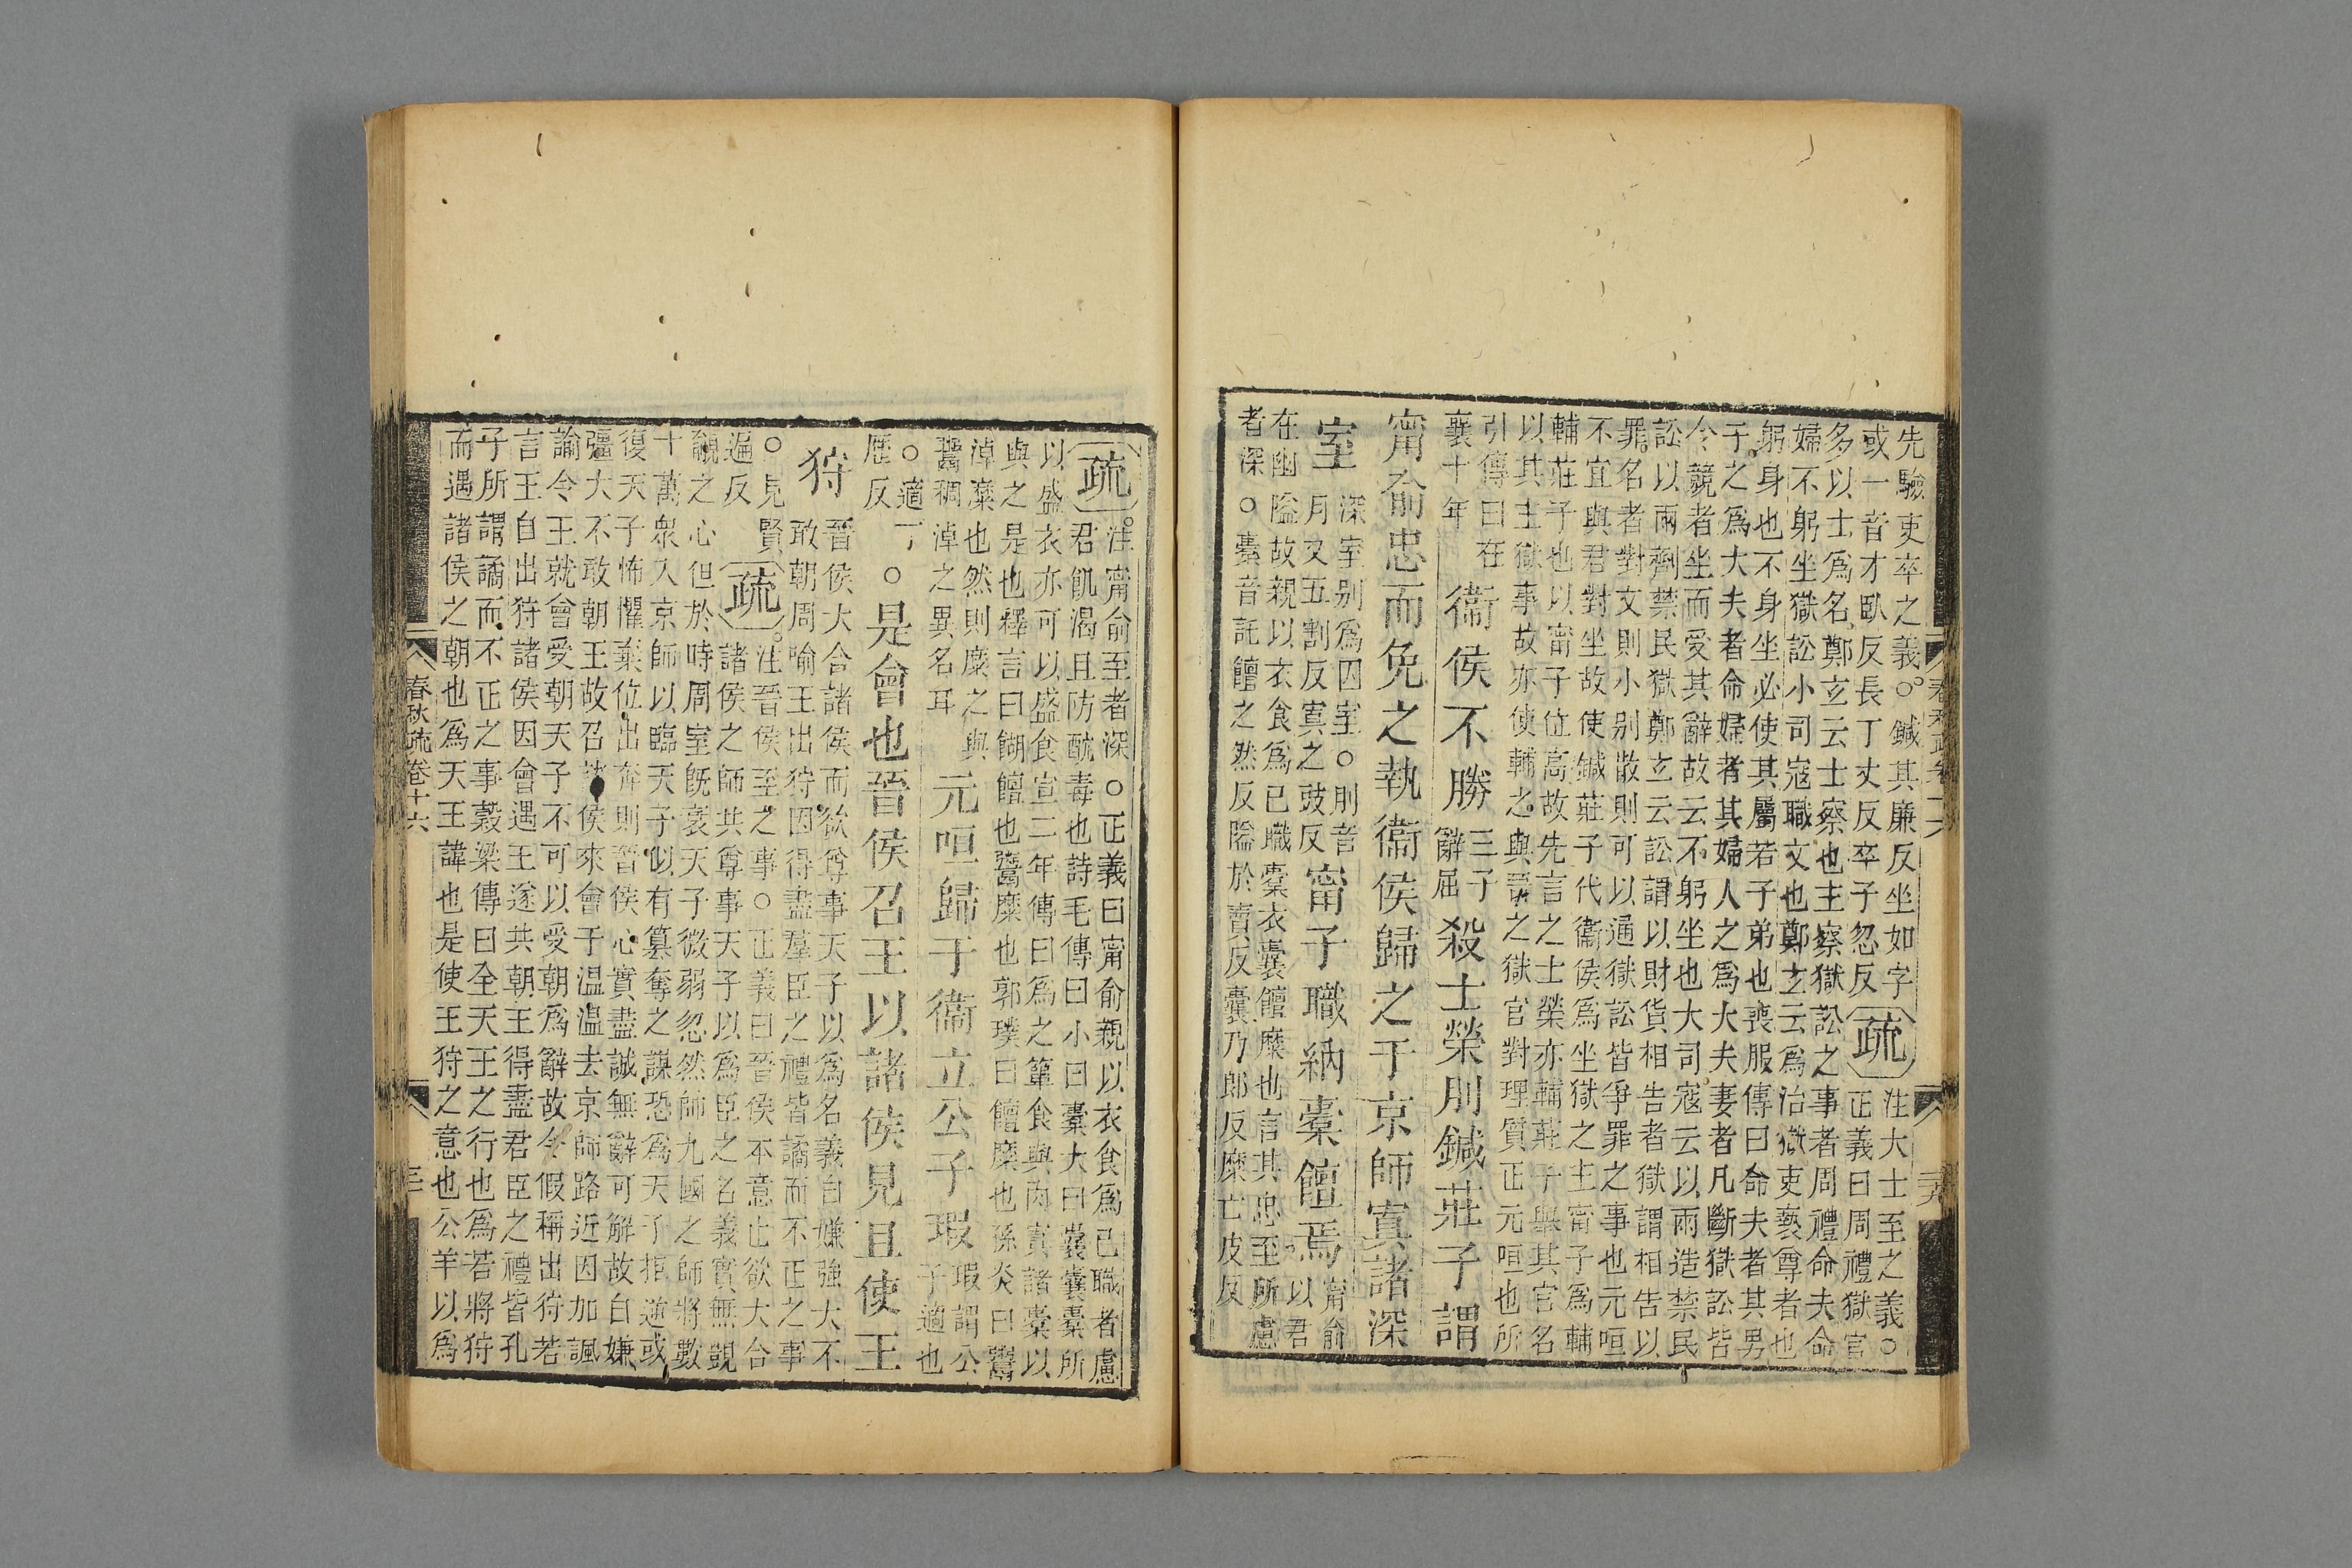 先驗吏卒之義○鍼其廉反坐如字
或一音才臥反長丁丈反卒子忽反
疏
注大士至之義○
正義曰周禮獄官
多以士爲名鄭玄云士察也主察獄訟之事者周禮命夫命
婦不躬坐獄訟小司寇職文也鄭玄云爲治獄吏褻尊者也
躬身也不身坐必使其屬若子弟也喪服傳曰命夫者其男
子之爲大夫者命婦者其婦人之爲大夫妻者凡斷獄訟皆
令競者坐而受其辭故云不躬坐也大司寇云以兩造禁民
訟以兩劑禁民獄鄭玄云訟謂以財貨相告者獄謂相告以
罪名者對文則小別散則可以通獄訟皆爭罪之事也元咺
不宜與君對坐故使鍼莊子代衞侯爲坐獄之主甯子爲輔
輔莊子也以甯子位高故先言之士榮亦輔莊子與其官名
以其主獄事故亦使輔之與晉之獄官對理質正元咺也所
引傳曰在
襄十年
衞侯不勝
三子
辭屈
殺士榮刖鍼莊子謂
甯俞忠而免之執衞侯歸之于京師寘諸深
室
深室別爲囚室○刖音
月又五割反寘之豉反
甯子職納橐饘焉
甯俞
以君
在幽隘故親以衣食爲已職橐衣囊饘糜也言其忠至所慮
者深○橐音託饘之然反隘於賣反囊乃郎反糜亡皮反
疏
注甯俞至者深○正義曰甯俞親以衣食爲己職者慮
君飢渴且防酖毒也詩毛傳曰小曰橐大曰囊囊橐所
以盛衣亦可以盛食宣二年傳曰爲之簞食與肉寘諸橐以
與之是也釋言曰餬饘也鬻糜也郭璞曰饘糜也孫炎曰鬻
淖糜也然則糜之與
鬻稠淖之異名耳
元咺歸于衞立公子瑕
瑕謂公
子適也
○適丁
歷反
○是會也晉侯召王以諸侯見且使王
狩
晉侯大合諸侯而欲尊事天子以爲名義自嫌強大不
敢朝周喻王出狩因得盡羣臣之禮皆譎而不正之事
○見賢
遍反
疏
注晉侯至之事○正義曰晉侯本意止欲大合
諸侯之師共尊事天子以爲臣之名義實無覬
覦之心但於時周室旣衰天子微弱忽然師九國之師將數
十萬衆入京師以臨天子似有篡奪之謀恐爲天子拒逆或
復天子怖懼棄位出奔則晉侯心實盡誠無辭可解故自嫌
彊大不敢朝王故召諸侯來會于温温去京師路近因加諷
諭令王就會受朝天子不可以受朝爲辭故令假稱出狩若
言王自出狩諸侯因會遇王遂共朝王得盡君臣之禮皆孔
子所謂譎而不正之事穀梁傳曰全天王之行也爲若將狩
而遇諸侯之朝也爲天王諱也是使王狩之意也公羊以爲
春秋疏卷十六